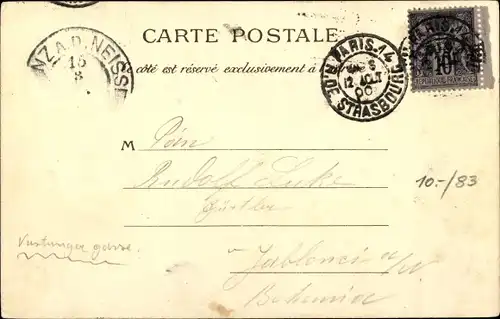 CARTE POSTALE
Ce côté est réservé exclusivement à l'adresse
NZ A.D. NEISSE
15
8
PARIS-14
R. DE STRASBOURG
12 AOUT
00
10
REPUBLIQUE FRANÇAISE
M
Rudolf
10.-/83
Gürtler
Jablonec a/N
Bohemia